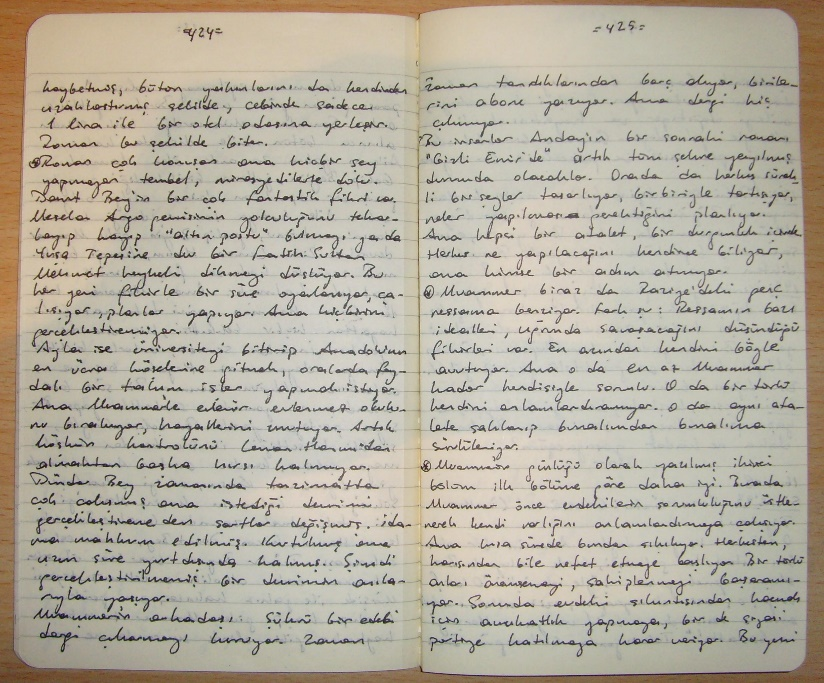 =424=
kaybetmiş, bütün yakınlarını da kendinden
uzaklaştırmış şekilde, cebinde sadece
1 lira ile bir otel odasına yerleşir.
Roman bu şekilde biter.
Roman çok konuşan ama hiçbir şey
yapmayan tembel, mirasyedilerle dolu.
Davut Bey'in bir çok fantastik fikri var.
Mesela Argo gemisinin yolculuğunu tekrar-
layıp kayıp "altın postu" bulmayı ya da
Yuşa Tepesine dev bir Fatih Sultan
Mehmet heykeli dikmeyi düşlüyor. Bu
her yeni fikirle bir süre oyalanıyor, ça-
lışıyor, planlar yapıyor. Ama hiçbirini
gerçekleştiremiyor.
Ayla ise üniversiteyi bitirip Anadolunun
en ücra köşelerine gitmek, oralarda fay-
dalı bir takım işler yapmak istiyor.
Ama Muammerle evlenir evlenmez okulu-
nu bırakıyor, hayallerini unutuyor. Artık
köşkün kontrolünü Hanımdan
almaktan başka hırsı kalmıyor.
Bey zamanında
çok çalışmış ama istediği devrimi
gerçekleştiremeden şartlar değişmiş, ida-
ma mahkum edilmiş. Kurtulmuş ama
uzun süre yurtdışında kalmış. Şimdi
gerçekleştirilmemiş bir devrimin anıla-
rıyla yaşıyor.
Muammerin arkadaşı Şükrü bir edebi
dergi çıkarmayı kuruyor. Zaman
=425=
zaman tanıdıklarından borç alıyor, birile-
rini abone yazıyor. Ama dergi hiç
çıkmıyor.
Bu insanlar Andayın bir sonraki romanı
"Gizli Emir"de artık tüm şehre yayılmış
durumda olacaklar. Orada da herkes sürek-
li bir şeyler tasarlıyor, birbiriyle tartışıyor,
neler yapılması gerektiğini planlıyor.
Ama hepsi bir atalet, bir durgunluk içinde.
Herkes ne yapılacağını kendince biliyor,
ama kimse bir adım atmıyor.
Muammer biraz da genç
ressama benziyor. Fark şu: Ressamın bazı
idealleri, uğrunda savaşacağını düşündüğü
fikirleri var. En azından kendini böyle
avutuyor. Ama o da en az Muammer
kadar kendisiyle sorunlu. O da bir türlü
kendini anlamlandıramıyor. O da aynı ata-
lete saklanıp bunalımdan bunalıma
sürükleniyor.
Muammerin günlüğü olarak yazılmış ikinci
bölüm ilk bölüme göre daha iyi. Burada
Muammer önce evdekilerin sorumluluğunu üstle-
nerek kendi varlığını anlamlandırmaya çalışıyor.
Ama kısa sürede bundan sıkılıyor. Herkesten,
karısından bile nefret etmeye başlıyor. Bir türlü
onları önemsemeyi, sahiplenmeyi başaramı-
yor. Sonunda evdeki sıkıntısından kaçmak
için avukatlık yapmaya, bir de siyasi
partiye katılmaya karar veriyor. Bu yeni